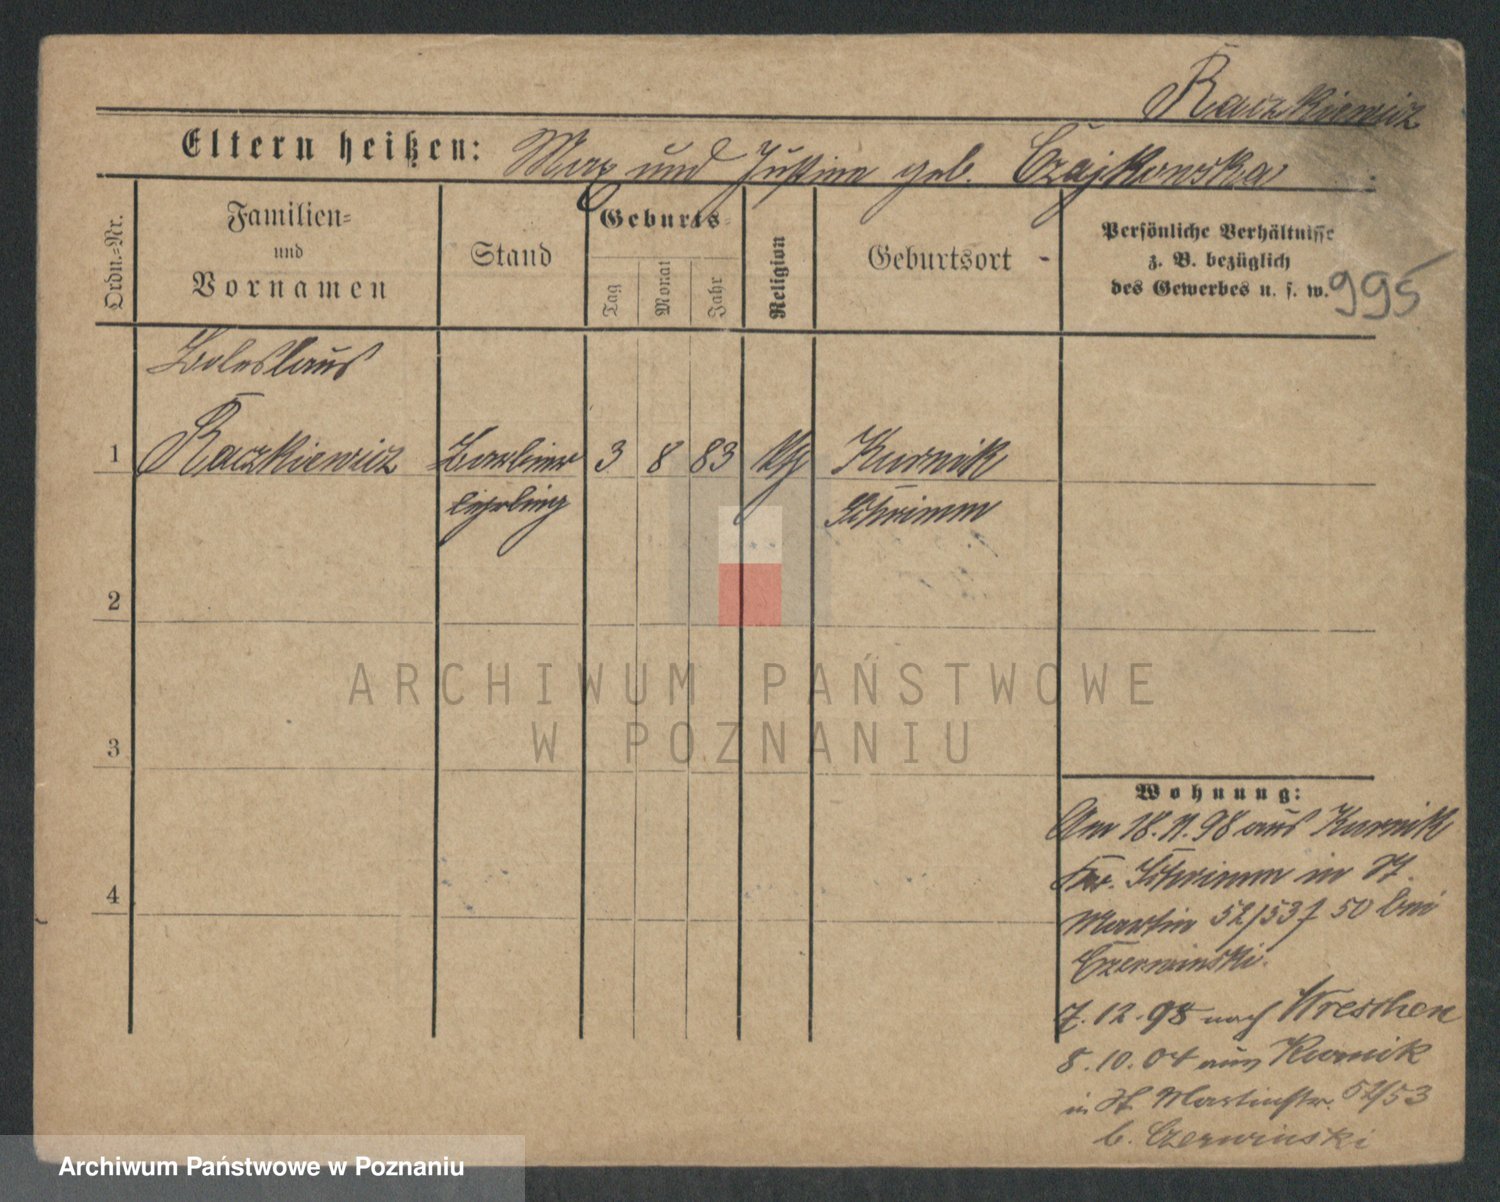 Raczkiewicz
Eltern heißen: Max und Justine geb. Czajkowska
Ordn.=Nr.
Familien=
und
Vornamen
Stand
Geburts=
Tag
Monat
Jahr
Religion
Geburtsort
Persönliche Verhältnisse
z. B. bezüglich
des Gewerbes u. s. w.
995
Boleslaus
1 Raczkiewicz Barbier 3 8 83 Kurnik
lehrling Schrimm
2
ARCHIWUM PAŃSTWOWE
W POZNANIU
3
4
Wohnung:
Am 18. 11. 98 aus Kurnik
Kr. Schrimm in St.
Martin 52/53 50 bei
Czerwinski.
7. 12. 98 nach Wreschen
8. 10. 04 aus Kurnik
in St Martinstr. 52/53
b. Czerwinski
Archiwum Państwowe w Poznaniu